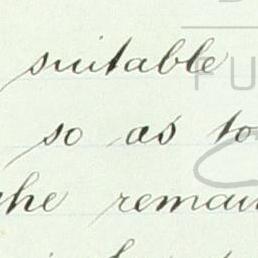 suitable
so as to
the remain